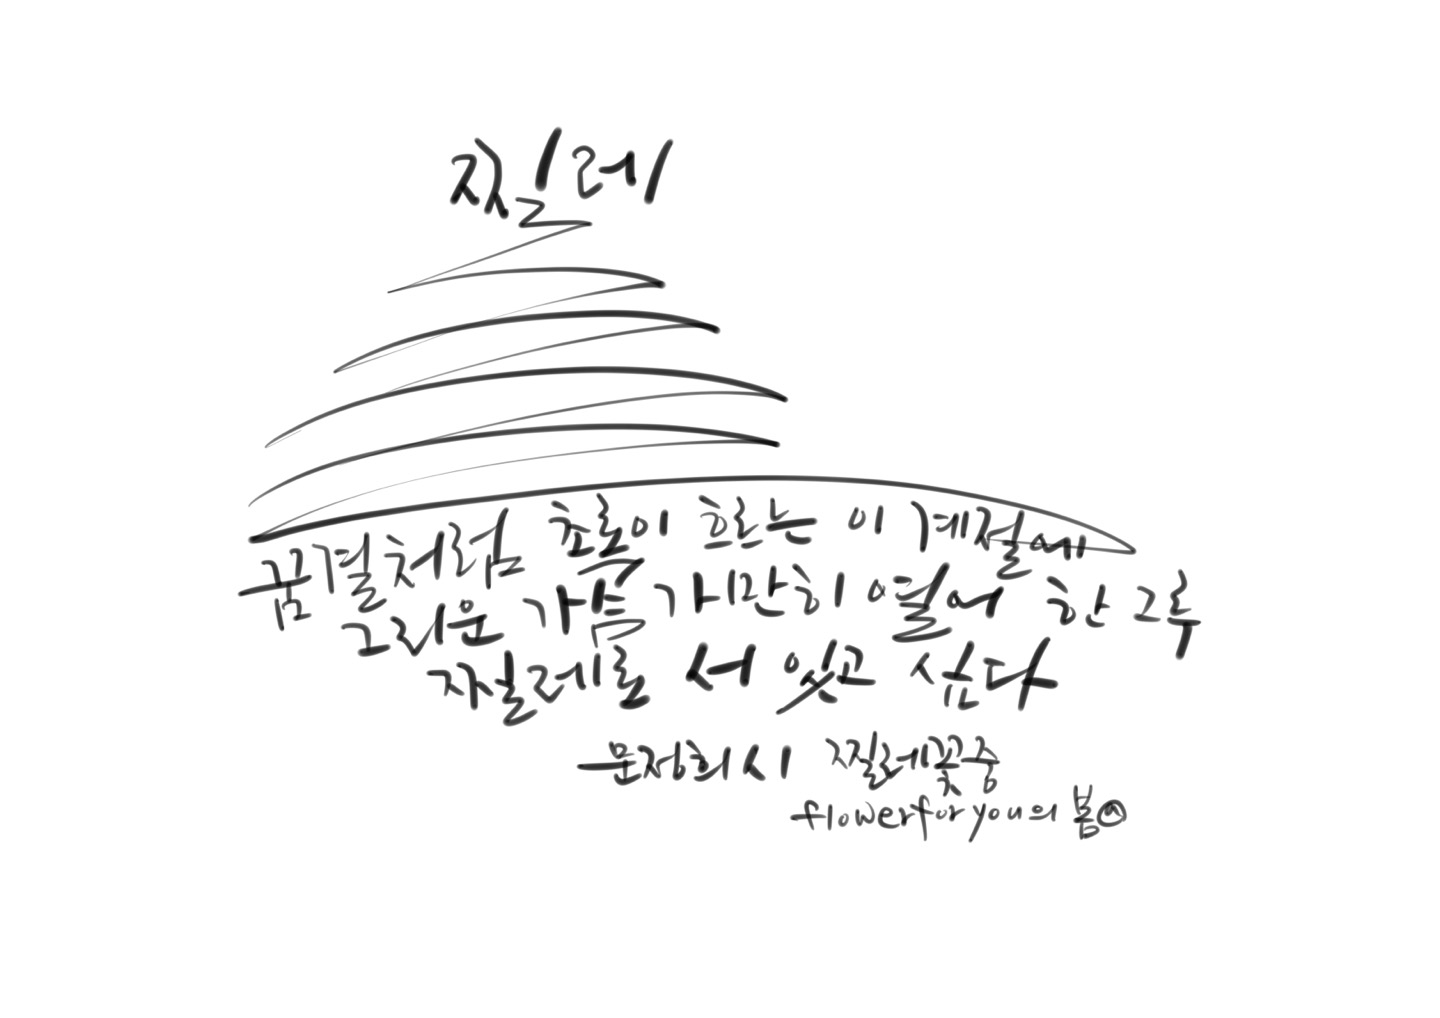 찔레
꿈결처럼 초록이 흐르는 이 계절에
그리운 가슴 가만히 열어 한 그루
찔레로 서 있고 싶다
문정희 시 찔레꽃 중
flowerforyou의 봄